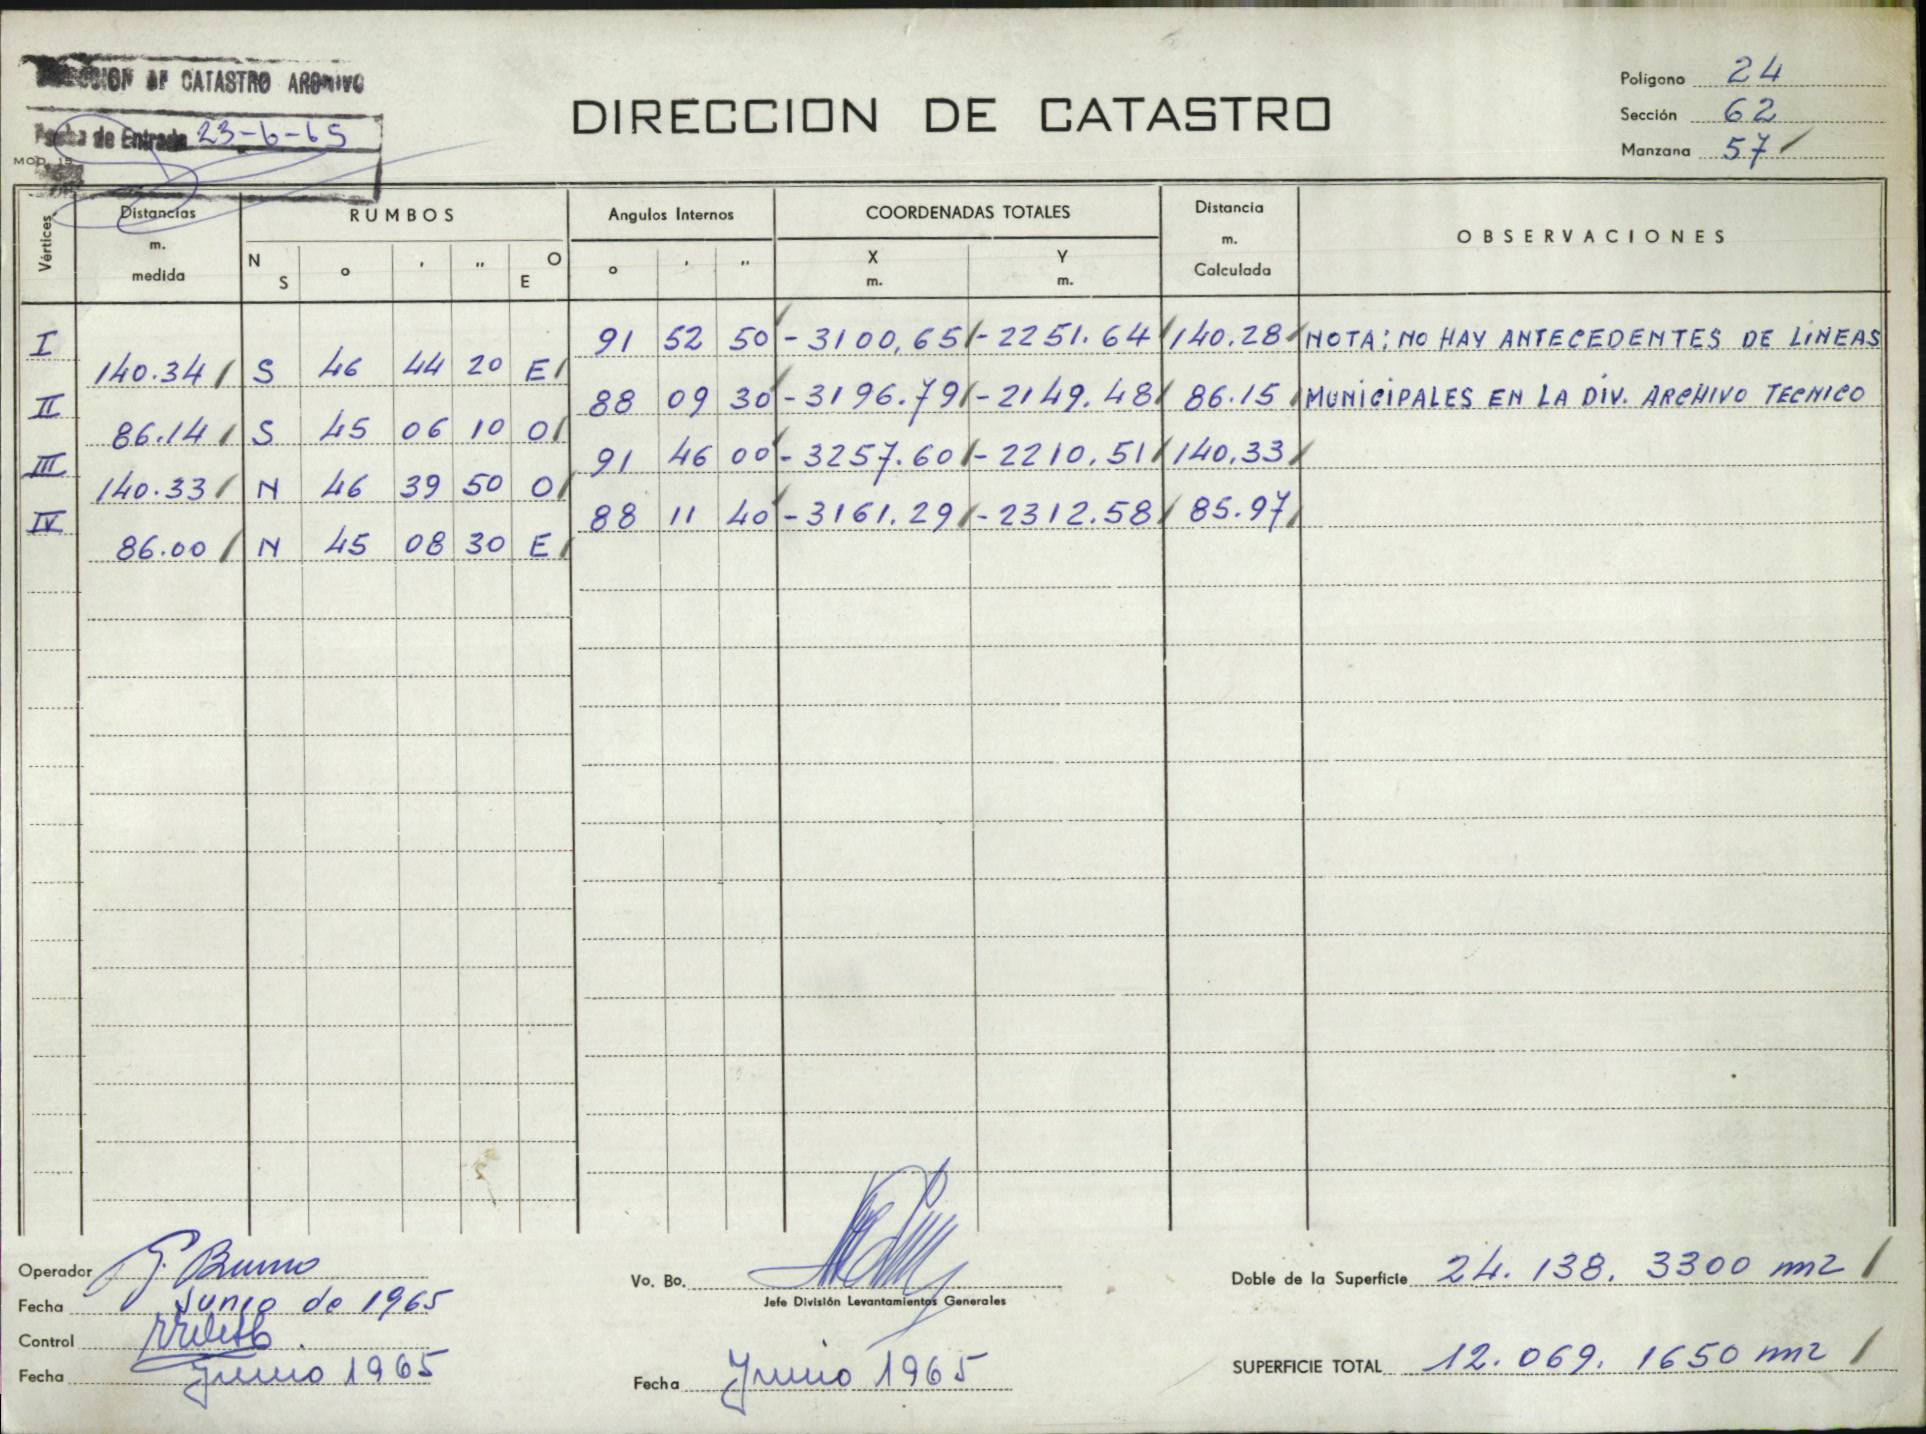 DIRECCION DE CATASTRO ARCHIVO
Fecha de Entrada 23-6-65
MOD. 15
DIRECCION DE CATASTRO
Polígono 24
Sección 62
Manzana 57
Vértices Distancias m. medida RUMBOS Angulos Internos COORDENADAS TOTALES Distancia m. Calculada OBSERVACIONES
N S ° ' " O E ° ' " X m. Y m.
I 91 52 50 -3100,65 -2251.64 140.28 NOTA: NO HAY ANTECEDENTES DE LINEAS
140.34 S 46 44 20 E
II 88 09 30 -3196.79 -2149.48 86.15 MUNICIPALES EN LA DIV. ARCHIVO TECNICO
86.14 S 45 06 10 O
III 91 46 00 -3257.60 -2210.51 140.33
140.33 N 46 39 50 O
IV 88 11 40 -3161.29 -2312.58 85.97
86.00 N 45 08 30 E
Operador G. Bruno
Fecha Junio de 1965
Control
Fecha Junio 1965
Vo. Bo.
Jefe División Levantamientos Generales
Fecha Junio 1965
Doble de la Superficie 24.138.3300 m2
SUPERFICIE TOTAL 12.069.1650 m2